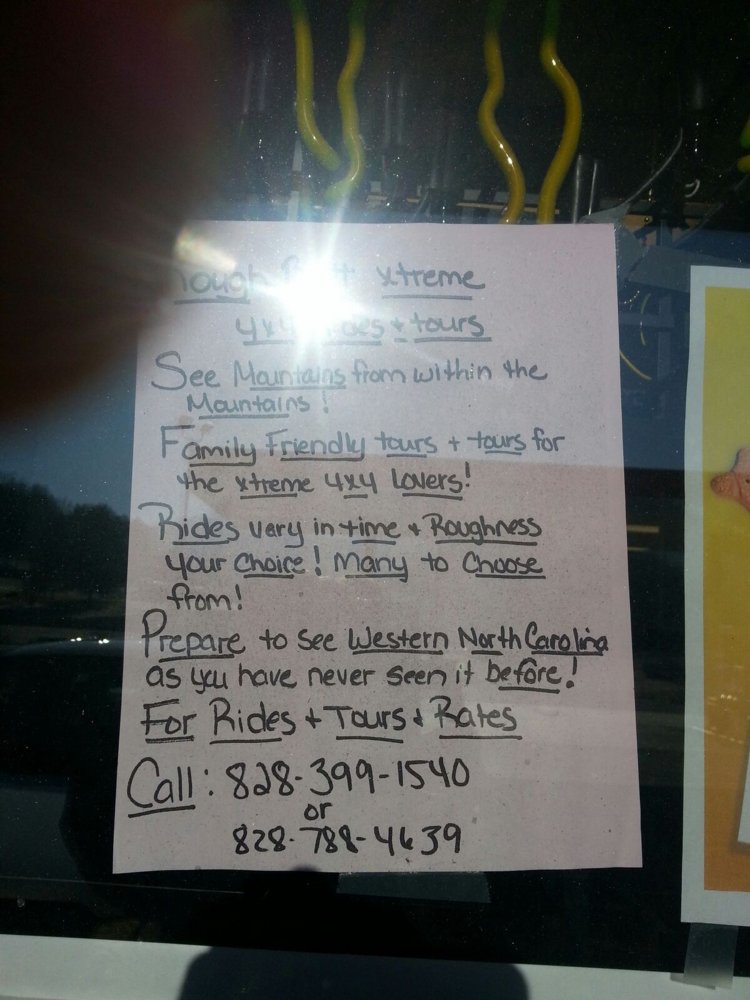 xtreme
4x4 + tours
See Mountains from within the
Mountains!
Family Friendly tours + tours for
the xtreme 4x4 Lovers!
Rides vary in time + Roughness
your Choice! Many to Choose
from!
Prepare to see Western North Carolina
as you have never seen it before!
For Rides + Tours + Rates
Call: 828-399-1540
or
828-788-4639